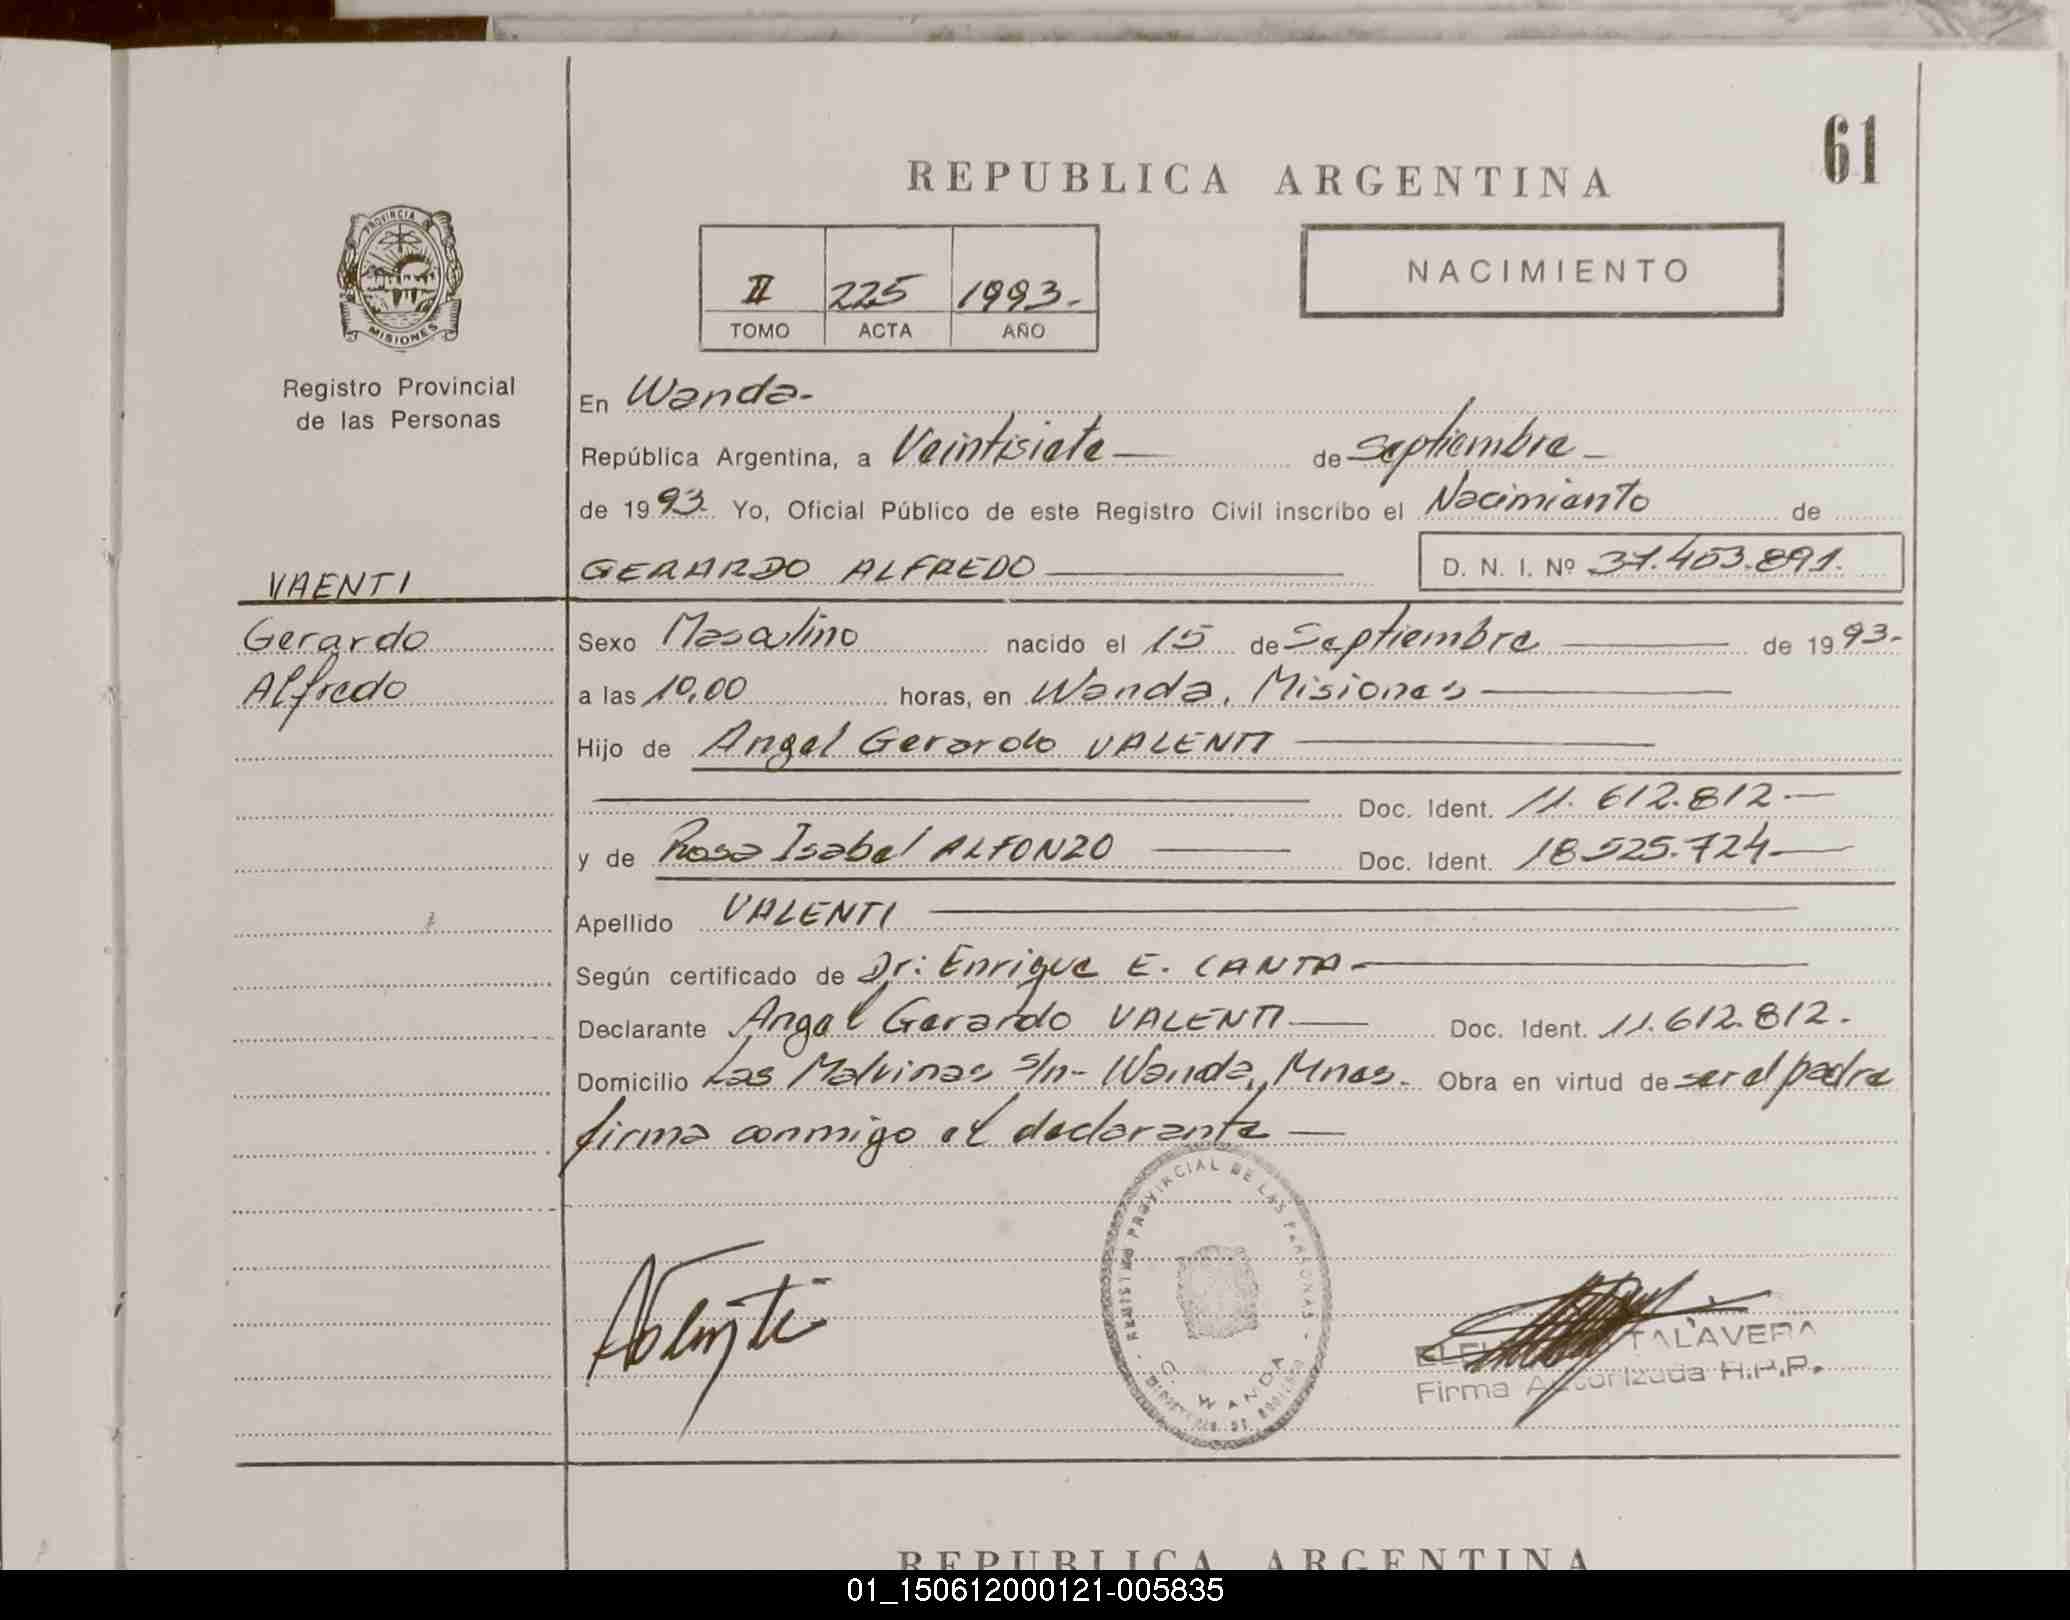 61
REPUBLICA ARGENTINA
PROVINCIA DE
MISIONES
II 225 1993.-
TOMO ACTA AÑO
NACIMIENTO
Registro Provincial
de las Personas
En Wanda.-
República Argentina, a Veintisiete — de Septiembre –
de 1993.- Yo, Oficial Público de este Registro Civil inscribo el Nacimiento de
VAENTI
GERARDO ALFREDO — D. N. I. Nº 37.403.891.
Gerardo
Alfredo
Sexo Masculino nacido el 15 de Septiembre — de 1993.-
a las 10,00 horas, en Wanda, Misiones —
Hijo de Angel Gerardo VALENTI —
Doc. Ident. 11.612.812.—
y de Rosa Isabel ALFONZO — Doc. Ident. 18.525.724.—
Apellido VALENTI —
Según certificado de Dr: Enrique E. CANTA.—
Declarante Angel Gerardo VALENTI — Doc. Ident. 11.612.812.-
Domicilio Las Malvinas s/n- Wanda, Mnes.- Obra en virtud de ser el padre
firma conmigo el declarante —
REGISTRO PROVINCIAL DE LAS PERSONAS
WANDA
Valenti
TALAVERA
Firma Autorizada R.P.P.
REPUBLICA ARGENTINA
01_150612000121-005835